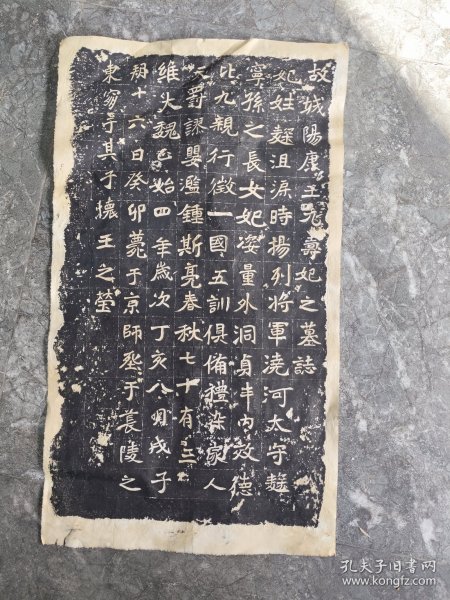 故城陽康王元壽妃之墓誌
妃姓麹沮渠時揚列將軍澆河太守麹
寧孫之長女妃姿量外洞貞丰內效德
比九親行徵一國五訓俱備禮染家人
天罰謬嬰濫鍾斯亮春秋七十有三
維大魏正始四年歲次丁亥八月戊子
朔十六日癸卯薨于京師葬于長陵之
東冢于其子懷王之塋
孔夫子旧书网
www.kongfz.com